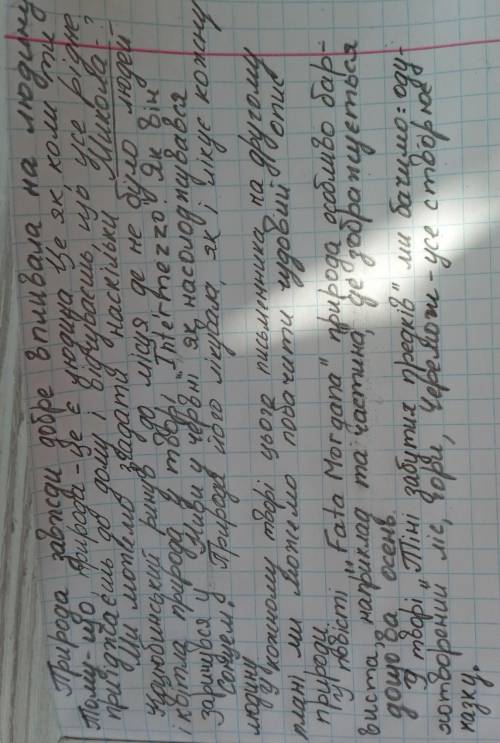 Природа завжди добре впливала на людину
тому-що природа - це є людина. Це як, коли ти
приїджаєшь до дому і відчуваєшь, що усе рідне.
Ми можемо згадати наскільки Микола
Кдцюбинський ринув до місця де не було людей
і квітла природа у творі "Intermezzo". Як він
зарився у ниви у червні, як насолоджувався
сонцем. Природа його лікувала, як і лікує кожну
людину.
У кожному творі цього письменника на другому
плані ми можемо побачити чудовий опис
природи.
У повісті "Fata Morgana" природа особливо бар-
виста, наприклад та частина, де зображується
дощова осень.
У творі "Тіні забутих предків" ми бачимо: оду-
хотворений ліс, гори, Черемош - усе створює
казку.